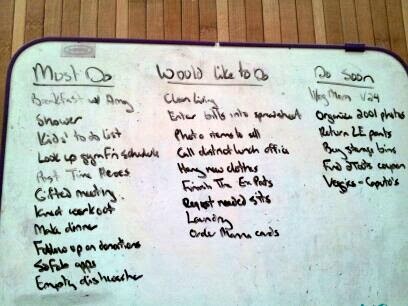 Must Do
Breakfast w/ Amy
Shower
Kids' to do list
Look up gym fn schedule
Past Time Pieces
Gifted meeting
Knead workout
Make dinner
Follow up on donations
SoFab apps
Empty dishwasher
Would like to Do
Clean Living
Enter bills into spreadsheet
Photo items to sell
Call district lunch office
Hang new clothes
Finish The Ex Pats
Request needed sits
Laundry
Order Mama cards
Do Soon
V24
Organize 2001 photos
Return LE pants
Buy storage bins
Find coupon
Veggies - Caputo's